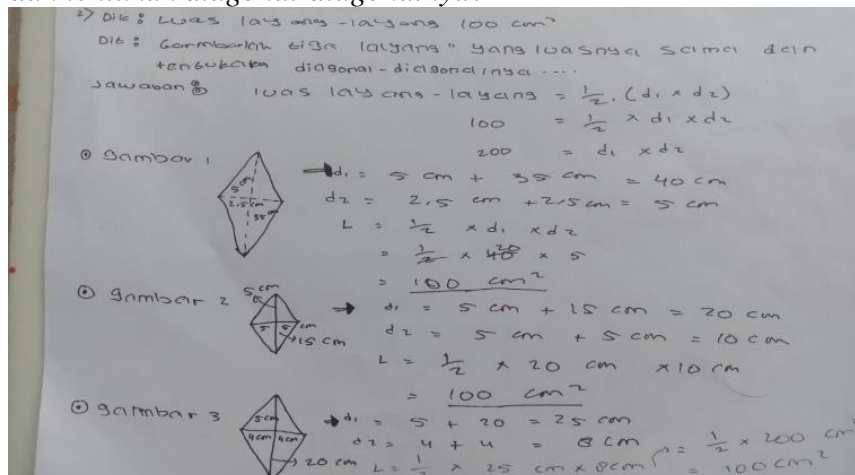 2) Dik : Luas layang-layang 100 cm²
Dit : Gambarlah tiga layang" yang luasnya sama dan
tentukan diagonal-diagonalnya ....
Jawaban : luas layang-layang = 1/2 . (d1 x d2)
100 = 1/2 x d1 x d2
200 = d1 x d2
Gambar 1
5 cm
2,5 cm
35 cm
d1 = 5 cm + 35 cm = 40 cm
d2 = 2,5 cm + 2,5 cm = 5 cm
L = 1/2 x d1 x d2
= 1/2 x 40 20 x 5
= 100 cm²
Gambar 2
5 cm
5 5 cm
15 cm
d1 = 5 cm + 15 cm = 20 cm
d2 = 5 cm + 5 cm = 10 cm
L = 1/2 x 20 cm x 10 cm
= 100 cm²
Gambar 3
5 cm
4 cm 4 cm
20 cm
d1 = 5 + 20 = 25 cm
d2 = 4 + 4 = 8 cm
L = 1/2 x 25 cm x 8 cm
= 1/2 x 200 cm
= 100 cm²